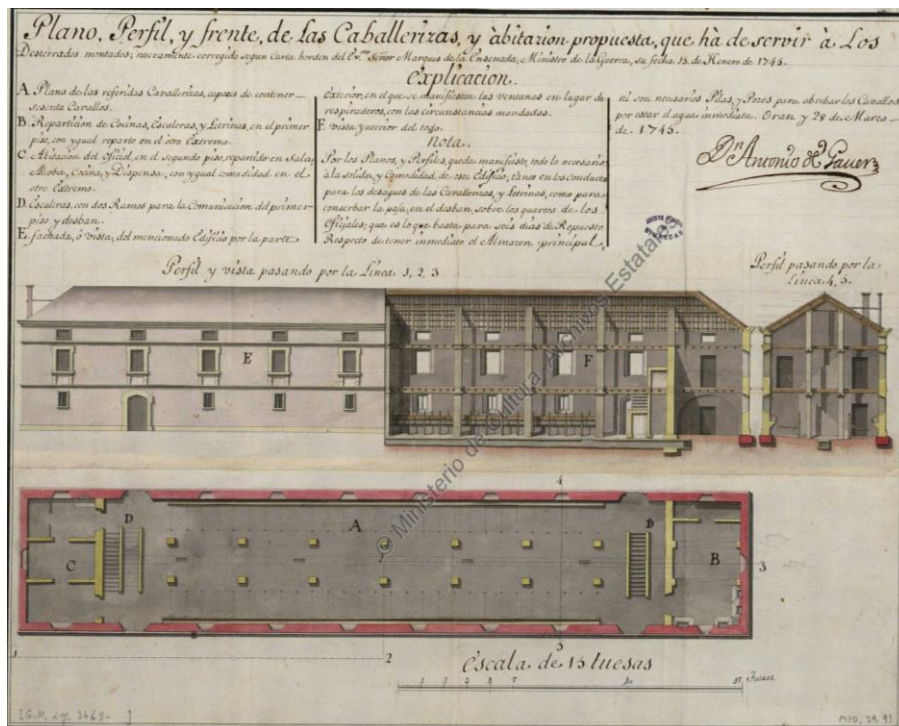 Plano, Perfil, y frente, de las Caballerizas, y àbitazion propuesta, que hà de servir à Los
Desterrados montados; nuevamente corregido segun Carta horden del Ex.mo Señor Marques de la Ensenada, Ministro de la Guerra, su fecha 15 de Henero de 1745.
explicacion.
A Plano de las referidas Cavallerizas, capases de contener
sesenta Cavallos.
B. Reparticion de Cocinas, Escaleras, y Letrinas, en el primer
piso, con ygual reparto en el otro Extremo.
C. Abitacion del Oficial, en el segundo piso, repartido en Sala,
Alcoba, Cocina, y Despensa, con ygual comodidad en el
otro Extremo.
D. Escaleras, con dos Ramos para la Comunicacion del primer
piso y desban.
E. fachada, ò vista, del mencionado Edificio por la parte
Exterior, en el que se manifiestan las ventanas en lugar de
respiraderos, con las circunstancias mandadas.
F. vista ynterior del
Nota.
Por los Planos, y Perfiles, queda manifiesto, todo lo necesario
à la solidez, y Comodidad de este Edificio, tanto en los Conductos
para los desagues de las Cavallerizas, y Letrinas, como para
conserbar la paja, en el desban, sobre los quartos de los
Oficiales; que es lo que basta para seis dias de Repuesto
Respecto de tener inmediato el Almazen principal,
ni son necesarios Pilas, y Poses para abrebar los Cavallos
por estar el agua inmediata. Oran y 28 de Marzo
de 1745.
Dn. Antonio de Gaver
Perfil y vista pasando por la Linea 1, 2, 3
Perfil pasando por la
Linea 4, 5.
E
F
4
D
A
D
C
B
2
3
1
2
5
escala de 15 tuesas
1 2 3 4 5 10 15 Tuesas
© Ministerio de Cultura. Archivos Estatales
[G.M. Lg. 3468- ]
MPD, 29, 93